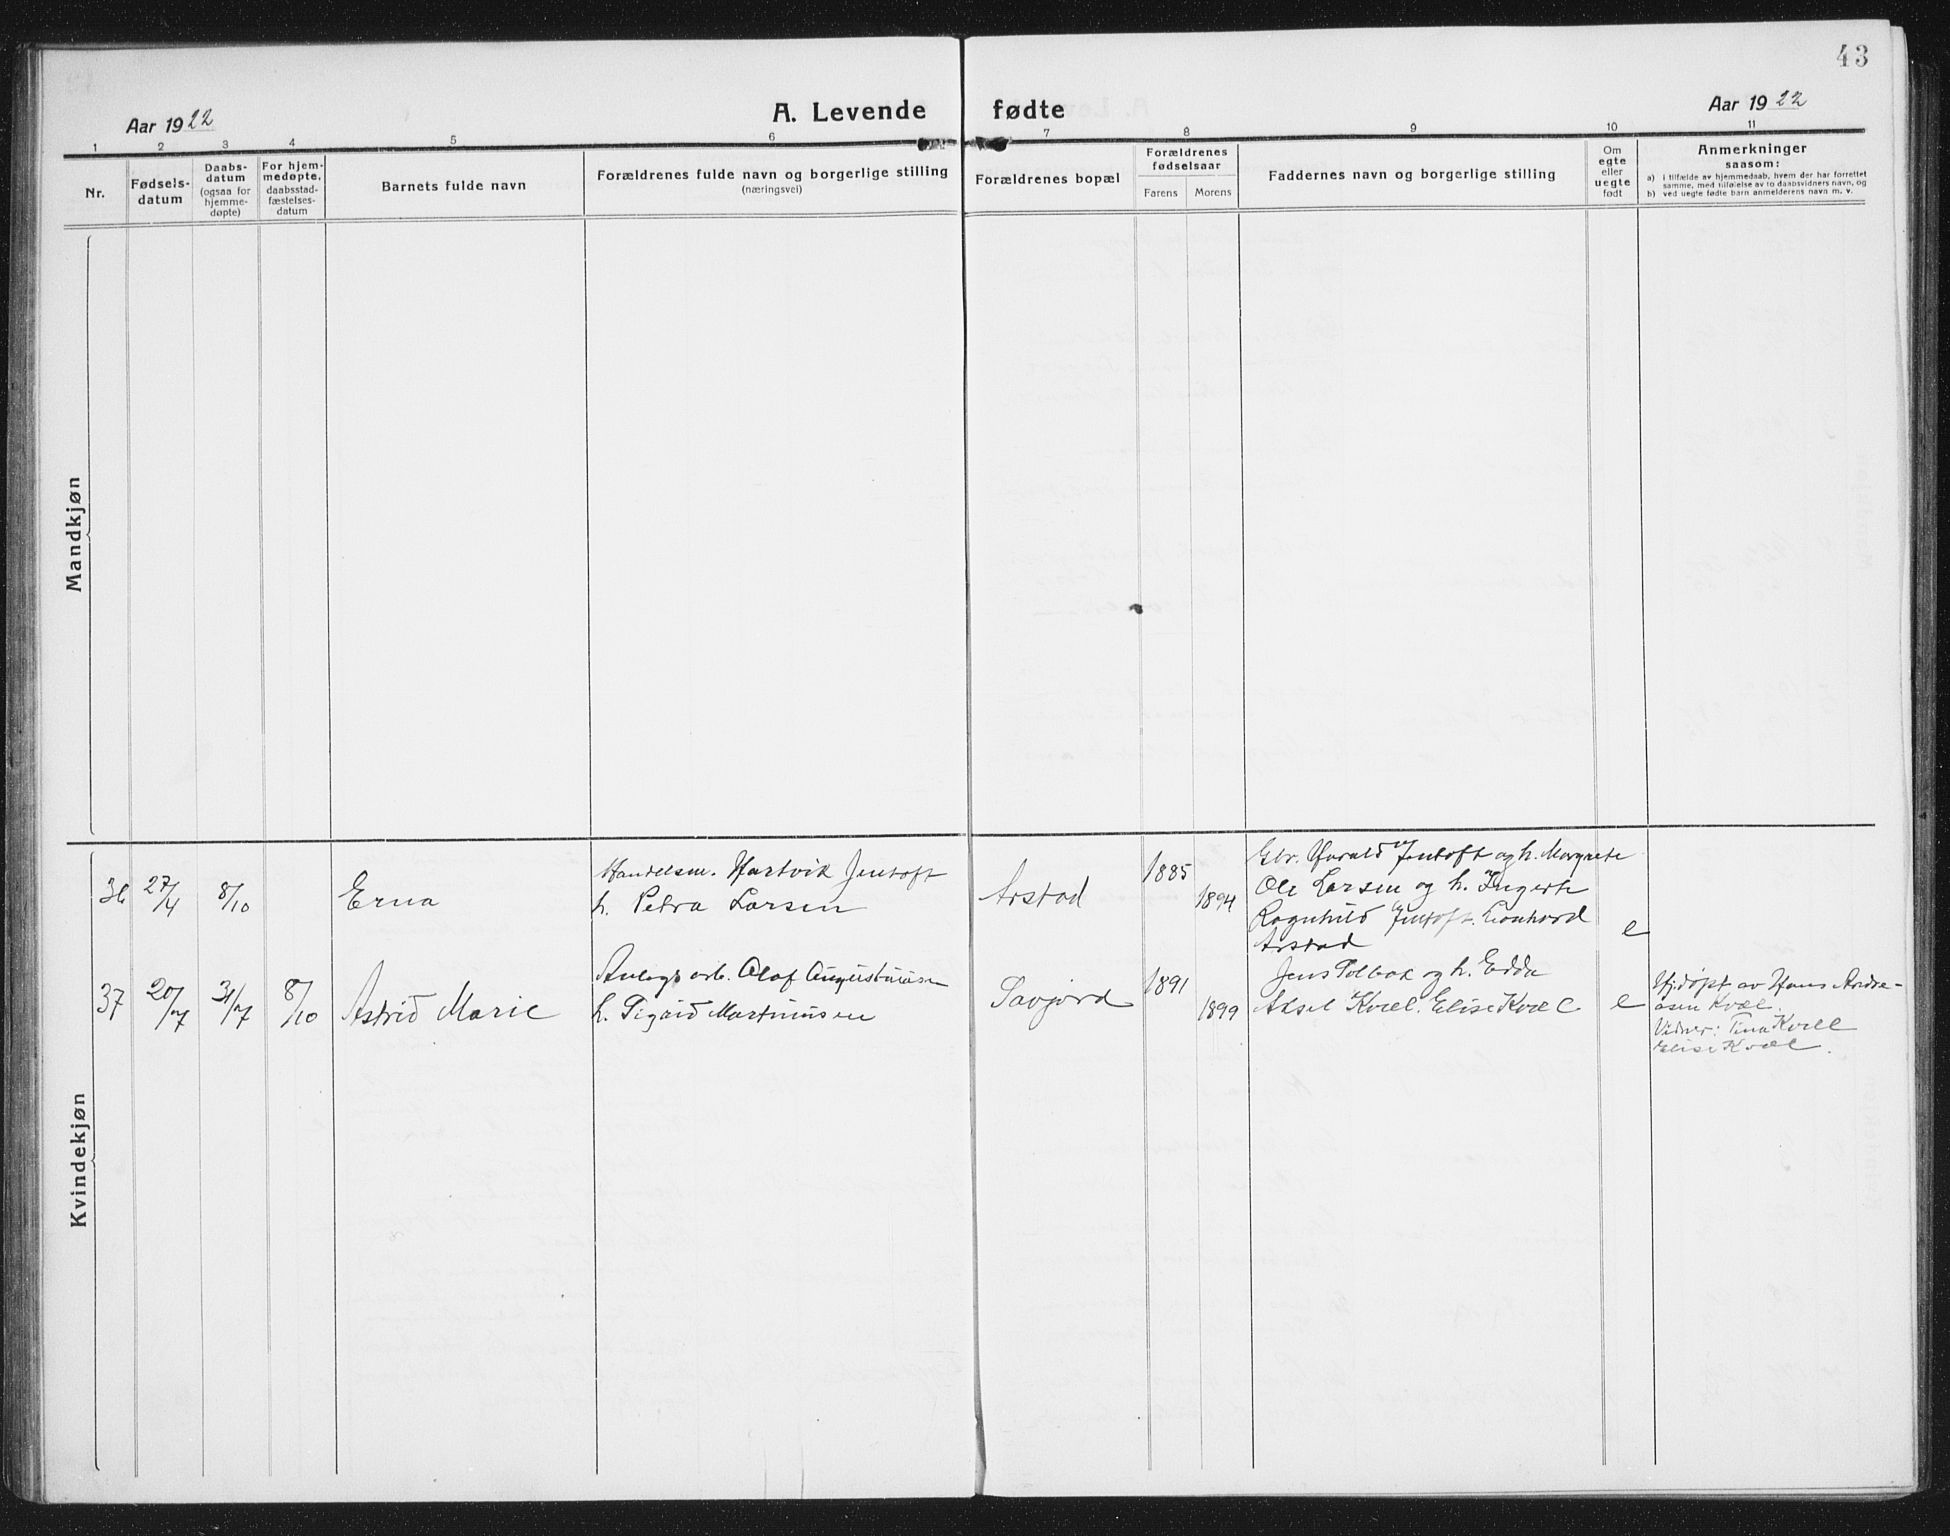 43
Aar 1922
A. Levende fødte
Aar 1922
1 2 3 4 5 6 7 8 9 10 11
Nr.
Fødsels-
datum
Daabs-
datum
(ogsaa for
hjemme-
døpte)
For hjem-
medøpte,
daabsstad-
fæstelses-
datum
Barnets fulde navn
Forældrenes fulde navn og borgerlige stilling
(næringsvei)
Forældrenes bopæl
Forældrenes
fødselsaar
Farens Morens
Faddernes navn og borgerlige stilling
Om
egte
eller
uegte
født
Anmerkninger
saasom:
a) i tilfælde av hjemmedaab, hvem der har forrettet
samme, med tilføielse av to daabsvidners navn, og
b) ved uegte fødte barn anmelderens navn m. v.
Mandkjøn
Kvindekjøn
36 27/4 8/10
Erna
Handelsm. Hartvik Jentoft
h. Petra Larsen
Arstad
1885
1894
Gbr. Harald Jentoft og h. Margrete
Ole Larsen og h. Ingerte
Ragnhild Jentoft. Leonhard
Arstad
e
37 20/7 31/7 8/10
Astrid Marie
Anlegs arb. Olaf Augustinusen
h. Sigrid Martinusen
Savjord
1891
1899
Jens Solbak og h. Edda
Aksel Kvæl. Elise Kvæl
e
Hj.døpt av Hans Andre-
asen Kvæl.
Vidner: Tina Kvæl
Elise Kvæl.